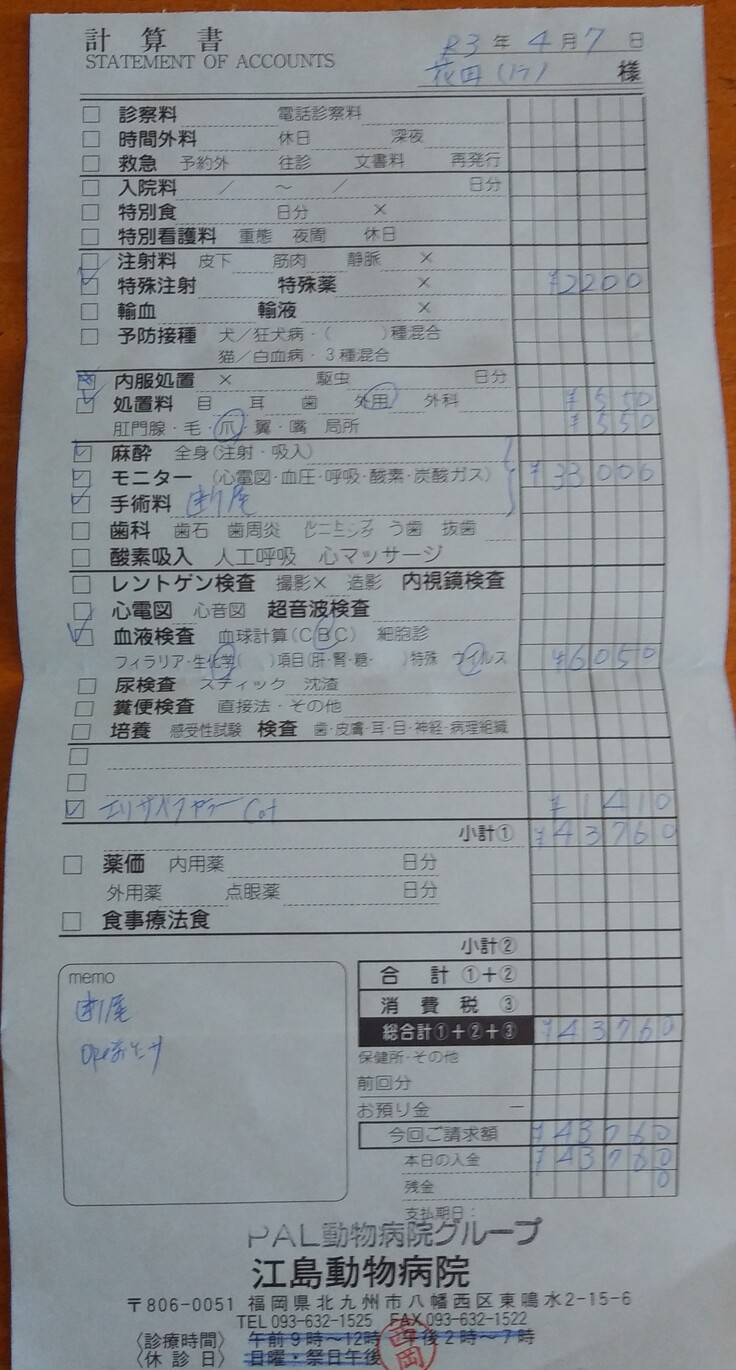 計算書
STATEMENT OF ACCOUNTS
R3年4月7日
花田 様
診察料 電話診察料
時間外料 休日 深夜
救急 予約外 往診 文書料 再発行
入院料 / 〜 / 日分
特別食 日分 ×
特別看護料 重態 夜間 休日
注射料 皮下 筋肉 静脈 ×
特殊注射 特殊薬 × ¥2200
輸血 輸液 ×
予防接種 犬/狂犬病・( )種混合
猫/白血病・3種混合
内服処置 × 駆虫 日分
処置料 目 耳 歯 外用 外科 ¥550
肛門腺・毛・爪・翼・嘴 局所 ¥550
麻酔 全身(注射・吸入)
モニター (心電図・血圧・呼吸・酸素・炭酸ガス) ¥33000
手術料 断尾
歯科 歯石 歯周炎 ルートプレーニング う歯 抜歯
酸素吸入 人工呼吸 心マッサージ
レントゲン検査 撮影× 造影 内視鏡検査
心電図 心音図 超音波検査
血液検査 血球計算(CBC) 細胞診
フィラリア・生化学( )項目(肝・腎・糖・ )特殊 ウイルス ¥6050
尿検査 スティック 沈渣
糞便検査 直接法・その他
培養 感受性試験 検査 歯・皮膚・耳・目・神経・病理組織
エリザベスカラー Cat ¥1410
小計① ¥43760
薬価 内用薬 日分
外用薬 点眼薬 日分
食事療法食
小計②
合計①+②
消費税③
総合計①+②+③ ¥43760
保健所・その他
前回分
お預り金 −
今回ご請求額 ¥43760
本日の入金 ¥43760
残金 0
支払期日:
memo
断尾
PAL動物病院グループ
江島動物病院
〒806-0051 福岡県北九州市八幡西区東鳴水2-15-6
TEL 093-632-1525 FAX 093-632-1522
〈診療時間〉 午前9時〜12時 午後2時〜7時
〈休診日〉 日曜・祭日午後
西岡